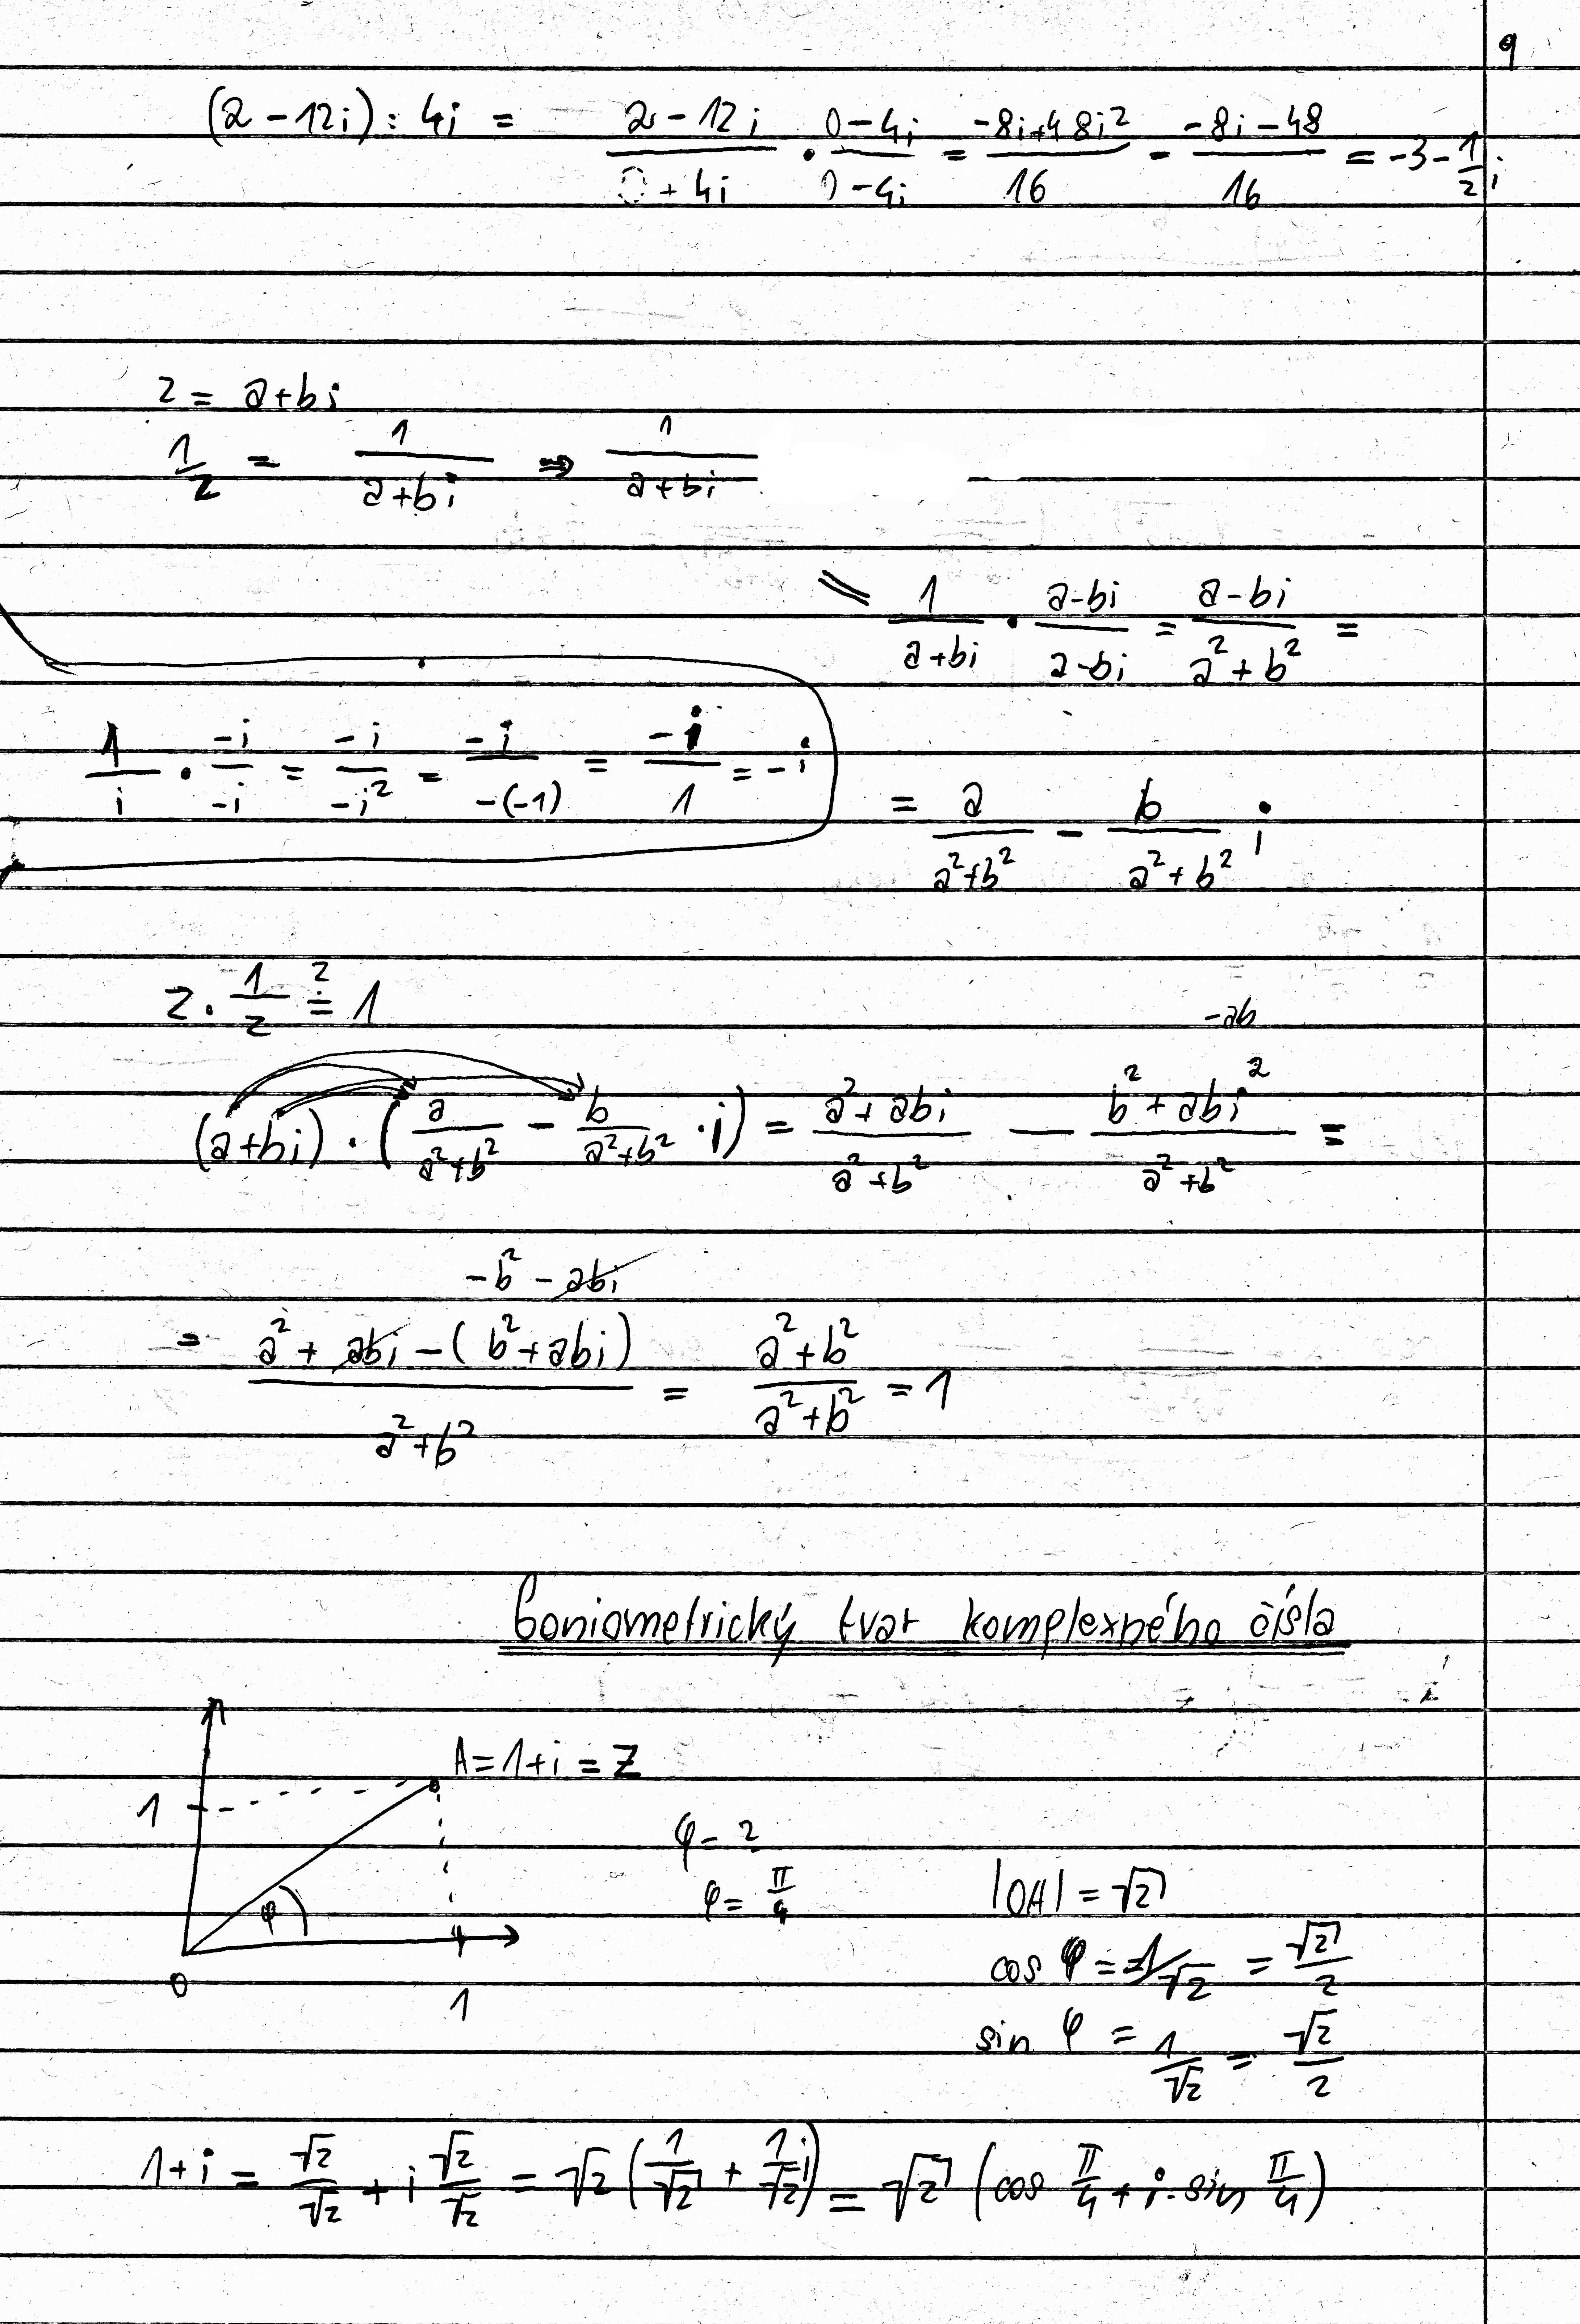 9
(2 - 12i) : 4i = \frac{2 - 12i}{0 + 4i} \cdot \frac{0 - 4i}{0 - 4i} = \frac{-8i + 48i^2}{16} = \frac{-8i - 48}{16} = -3 - \frac{1}{2}i
z = a+bi
\frac{1}{z} = \frac{1}{a+bi} ⇒ \frac{1}{a+bi}
= \frac{1}{a+bi} \cdot \frac{a-bi}{a-bi} = \frac{a-bi}{a^2+b^2} =
\frac{1}{i} \cdot \frac{-i}{-i} = \frac{-i}{-i^2} = \frac{-i}{-(-1)} = \frac{-i}{1} = -i
= \frac{a}{a^2+b^2} - \frac{b}{a^2+b^2} i
z \cdot \frac{1}{z} \stackrel{?}{=} 1
-ab
(a+bi) \cdot (\frac{a}{a^2+b^2} - \frac{b}{a^2+b^2} \cdot i) = \frac{a^2+abi}{a^2+b^2} - \frac{b^2+abi^2}{a^2+b^2} =
-b^2 - abi
= \frac{a^2+abi-(b^2+abi)}{a^2+b^2} = \frac{a^2+b^2}{a^2+b^2} = 1
Goniometrický tvar komplexného čísla
A = 1+i = z
1
φ = ?
φ = \frac{π}{4}
|OA| = √2
φ
0
1
cos φ = 1/√2 = \frac{√2}{2}
sin φ = \frac{1}{√2} = \frac{√2}{2}
1+i = \frac{√2}{√2} + i \frac{√2}{√2} = √2 (\frac{1}{√2} + \frac{1}{√2} i) = √2 (cos \frac{π}{4} + i \cdot sin \frac{π}{4})